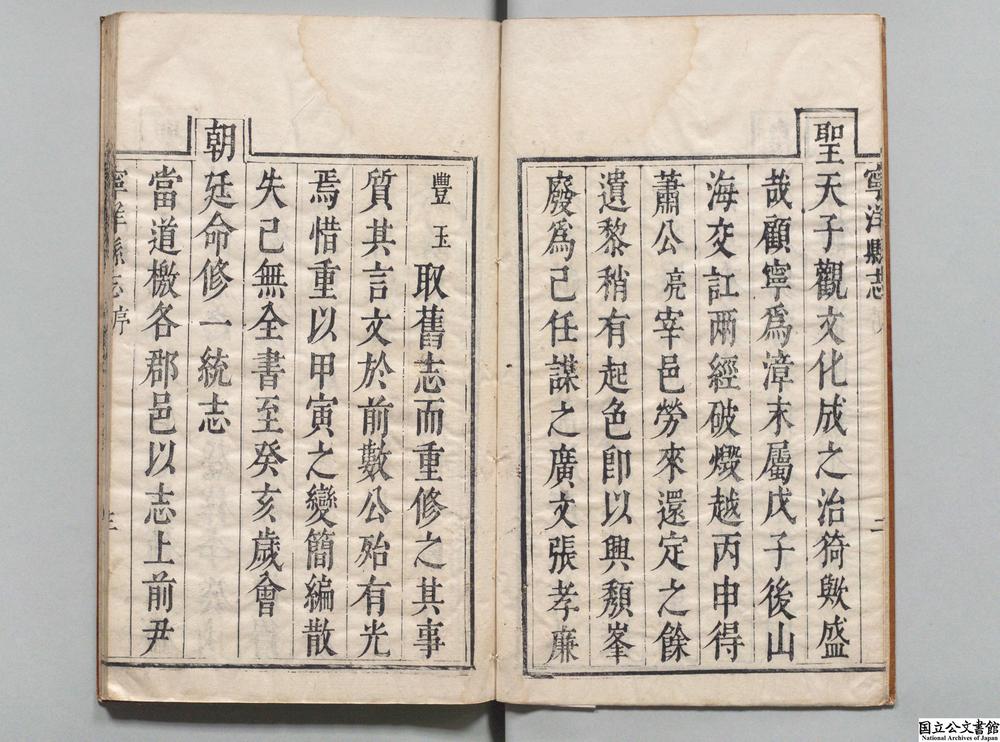 寧洋縣志
二
聖天子觀文化成之治猗歟盛
哉顧寧爲漳末屬戊子後山
海交訌兩經破燬越丙申得
蕭公亮宰邑勞來還定之餘
遺黎稍有起色卽以興頽峯
廢爲己任謀之廣文張孝廉
豐玉取舊志而重修之其事
質其言文於前數公殆有光
焉惜重以甲寅之變簡編散
失已無全書至癸亥歲會
朝廷命修一統志
當道檄各郡邑以志上前尹
寧洋縣志序
三
国立公文書館
National Archives of Japan